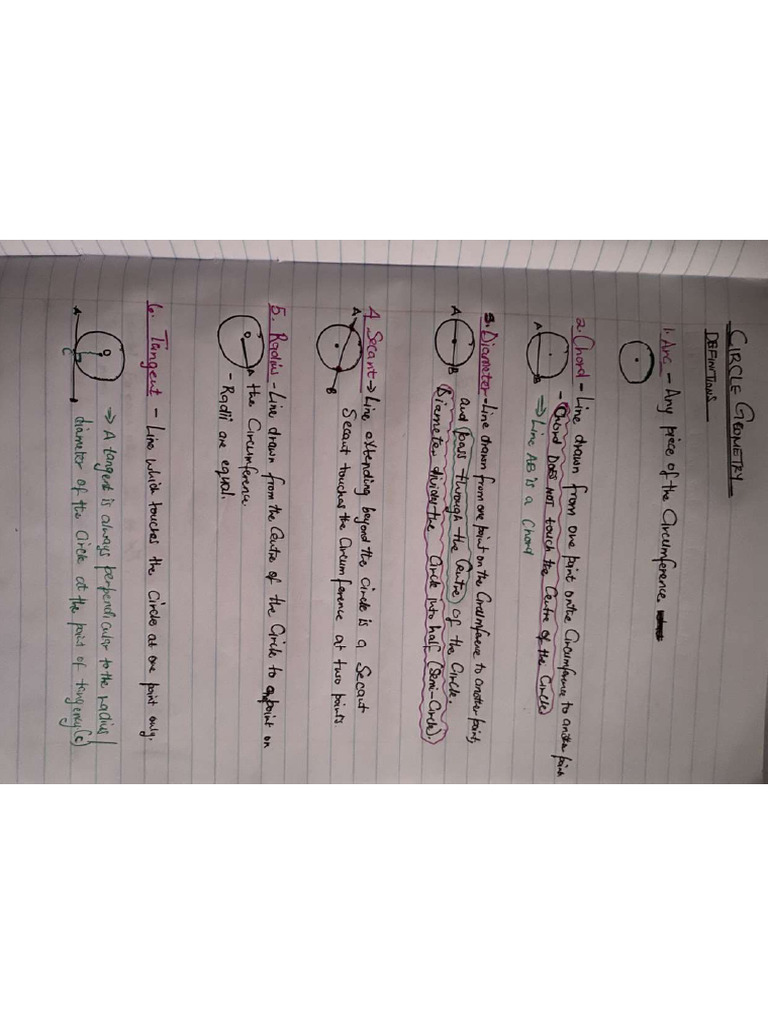 CIRCLE GEOMETRY
DEFINITIONS
1. Arc - Any piece of the Circumference.
2. Chord - Line drawn from one point on the Circumference to another point
- Chord DOES NOT touch the Centre of the Circle
A B → Line AB is a Chord
3. Diameter - Line drawn from one point on the Circumference to another point,
and pass through the Centre of the Circle.
A B Diameter divides the Circle into half (Semi-Circle).
4. Secant → Line extending beyond the Circle is a Secant
A B Secant touches the Circumference at two points
5. Radius - Line drawn from the Centre of the Circle to a point on
O A the Circumference.
- Radii are equal.
6. Tangent - Line which touches the Circle at one point only.
A O C → A tangent is always perpendicular to the radius/
diameter of the Circle at the point of tangency (C)